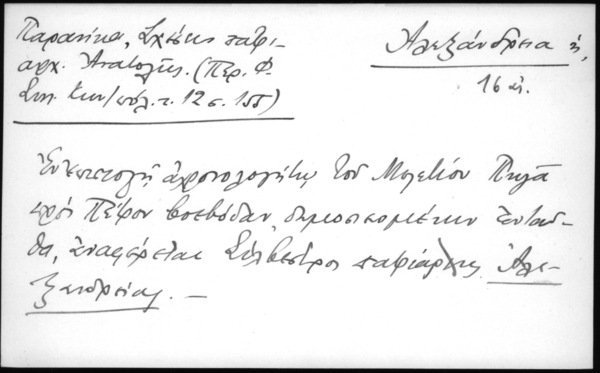 Παρανίκα, Σχέσεις πατρι-
αρχ. Ανατολῆς. (Περ. Φ.
Συλ. Κων/πόλ. τ. 12 σ. 155)
Ἀλεξάνδρεια ἡ,
16 αἰ.
Ἐν ἐπιστολῇ ἀχρονολογήτῳ τοῦ Μελετίου Πηγᾶ
πρὸς Πέτρον βοεβόδαν, δημοσιευομένην ἐνταῦ-
θα, ἀναφέρεται Σίλβεστρος πατριάρχης Ἀλε-
ξανδρείας. —